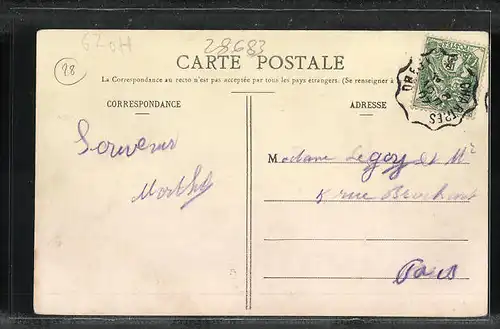 62 OH
28683
88
CARTE POSTALE
La Correspondance au recto n'est pas acceptée par tous les pays étrangers. (Se renseigner à
CORRESPONDANCE
ADRESSE
Souvenir
Madame Legoy et Mr
5 rue Brochant
Paris